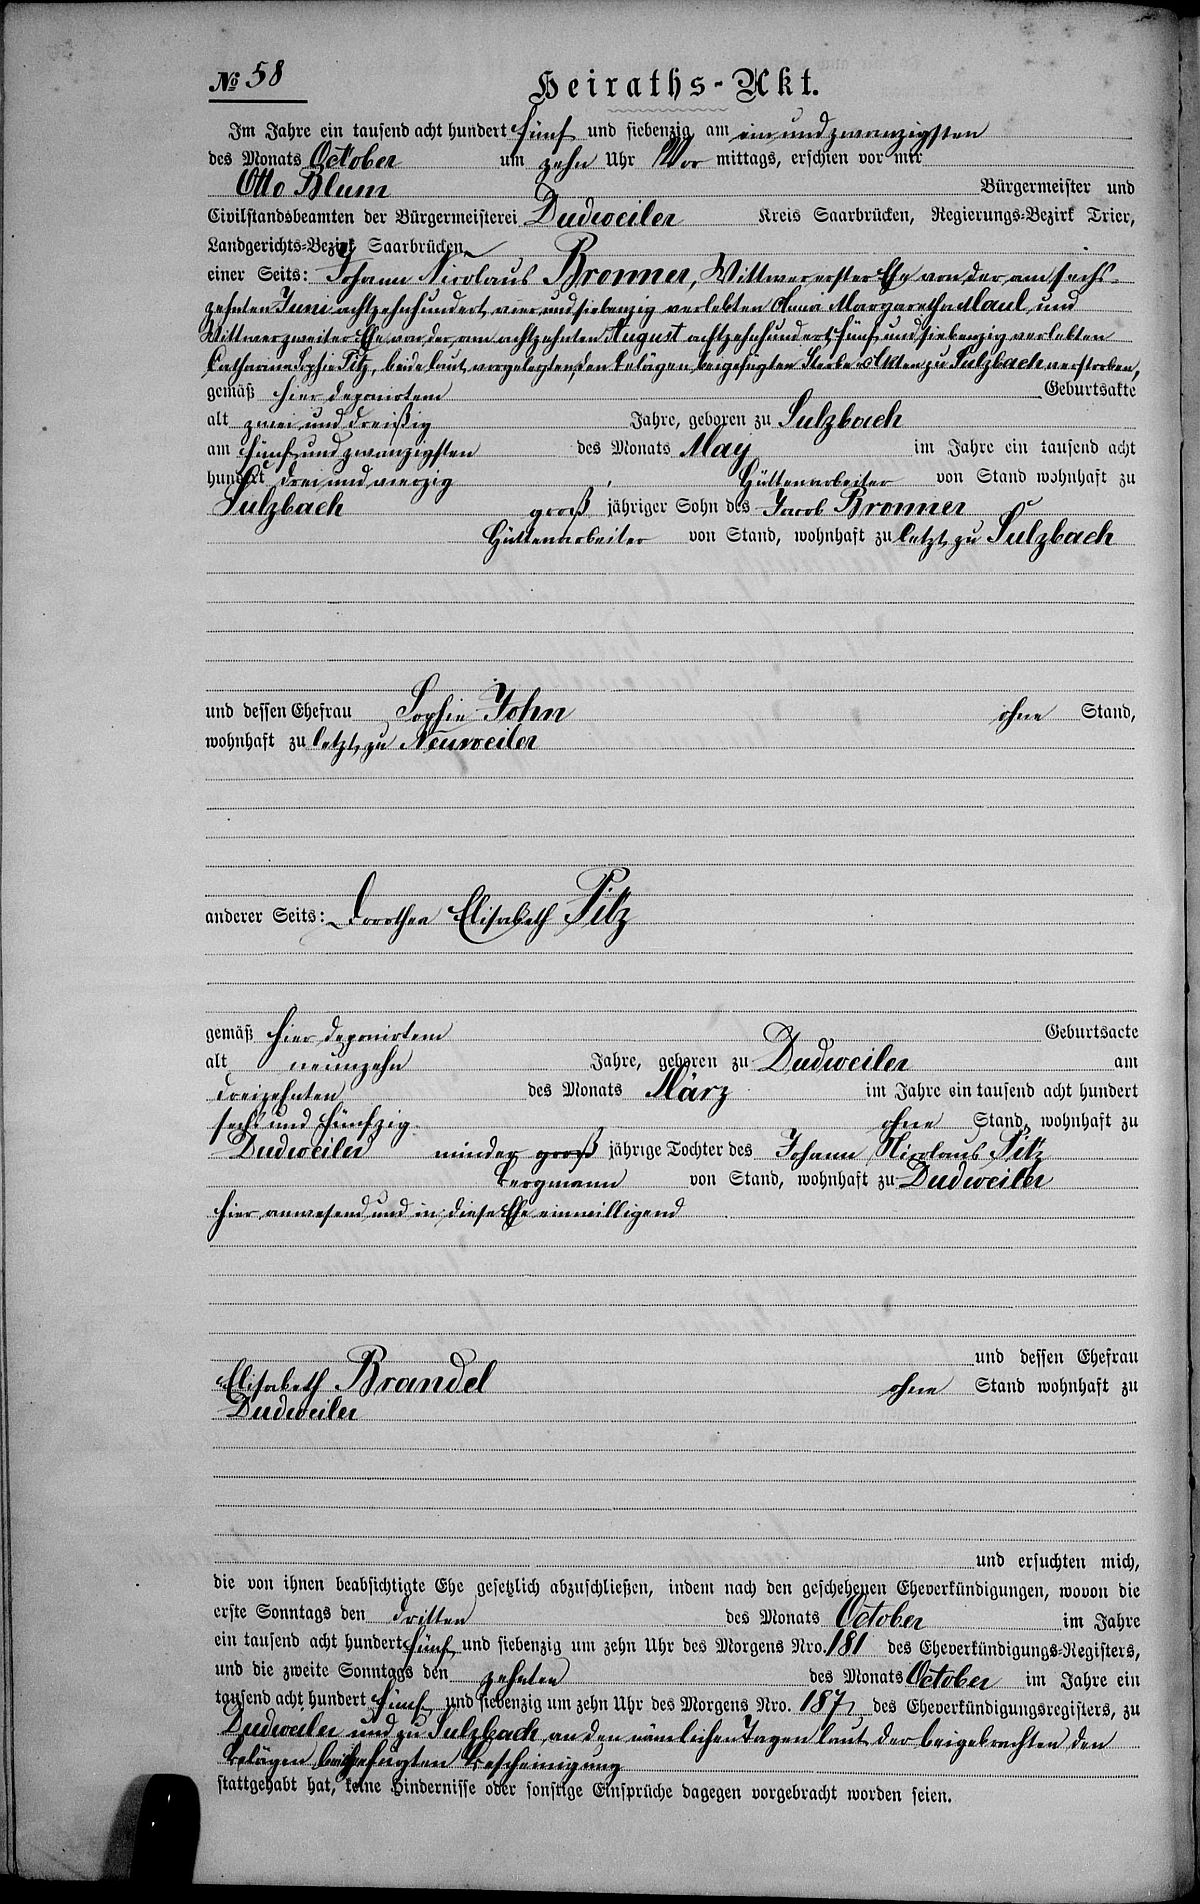 № 58
Heiraths-Akt.
Im Jahre ein tausend acht hundert fünf und siebenzig am ein und zwanzigsten
des Monats October um zehn Uhr Vor mittags, erschien vor mir
Otto Blum Bürgermeister und
Civilstandsbeamten der Bürgermeisterei Dudweiler Kreis Saarbrücken, Regierungs-Bezirk Trier,
Landgerichts-Bezirk Saarbrücken
einer Seits: Johann Nicolaus Bronner, Wittwer erster Ehe von der am sechs-
zehnten Juni achtzehnhundert vier und siebenzig verlebten Anna Margaretha Maul und
Wittwer zweiter Ehe von der am achtzehnten August achtzehnhundert fünf und siebenzig verlebten
Catharina Sophie Pitz, beide laut vorgelegten den Belägen beigefügten Sterbe Akten zu Sulzbach verstorben,
gemäß hier deponirtem Geburtsakte
alt zwei und dreißig Jahre, geboren zu Sulzbach
am fünf und zwanzigsten des Monats May im Jahre ein tausend acht
hundert drei und vierzig, Hüttenarbeiter von Stand wohnhaft zu
Sulzbach groß jähriger Sohn des Jacob Bronner
Hüttenarbeiter von Stand, wohnhaft zu letzt zu Sulzbach
und dessen Ehefrau Sophie John ohne Stand,
wohnhaft zu letzt zu Neuweiler
anderer Seits: Dorothea Elisabeth Pitz
gemäß hier deponirtem Geburtsacte
alt neunzehn Jahre, geboren zu Dudweiler am
dreizehnten des Monats März im Jahre ein tausend acht hundert
sechs und fünfzig ohne Stand, wohnhaft zu
Dudweiler minder groß jährige Tochter des Johann Nicolaus Pitz
Bergmann von Stand, wohnhaft zu Dudweiler
hier anwesend und in diese Ehe einwilligend
und dessen Ehefrau
Elisabeth Brandel ohne Stand wohnhaft zu
Dudweiler
und ersuchten mich,
die von ihnen beabsichtigte Ehe gesetzlich abzuschließen, indem nach den geschehenen Eheverkündigungen, wovon die
erste Sonntags den dritten des Monats October im Jahre
ein tausend acht hundert fünf und siebenzig um zehn Uhr des Morgens Nro. 181 des Eheverkündigungs-Registers,
und die zweite Sonntags den zehnten des Monats October im Jahre ein
tausend acht hundert fünf und siebenzig um zehn Uhr des Morgens Nro. 187 des Eheverkündigungsregisters, zu
Dudweiler und zu Sulzbach an den nämlichen Tagen laut der beigebrachten den
Belägen beigefügten Bescheinigung
stattgehabt hat, keine Hindernisse oder sonstige Einsprüche dagegen vorgebracht worden seien.